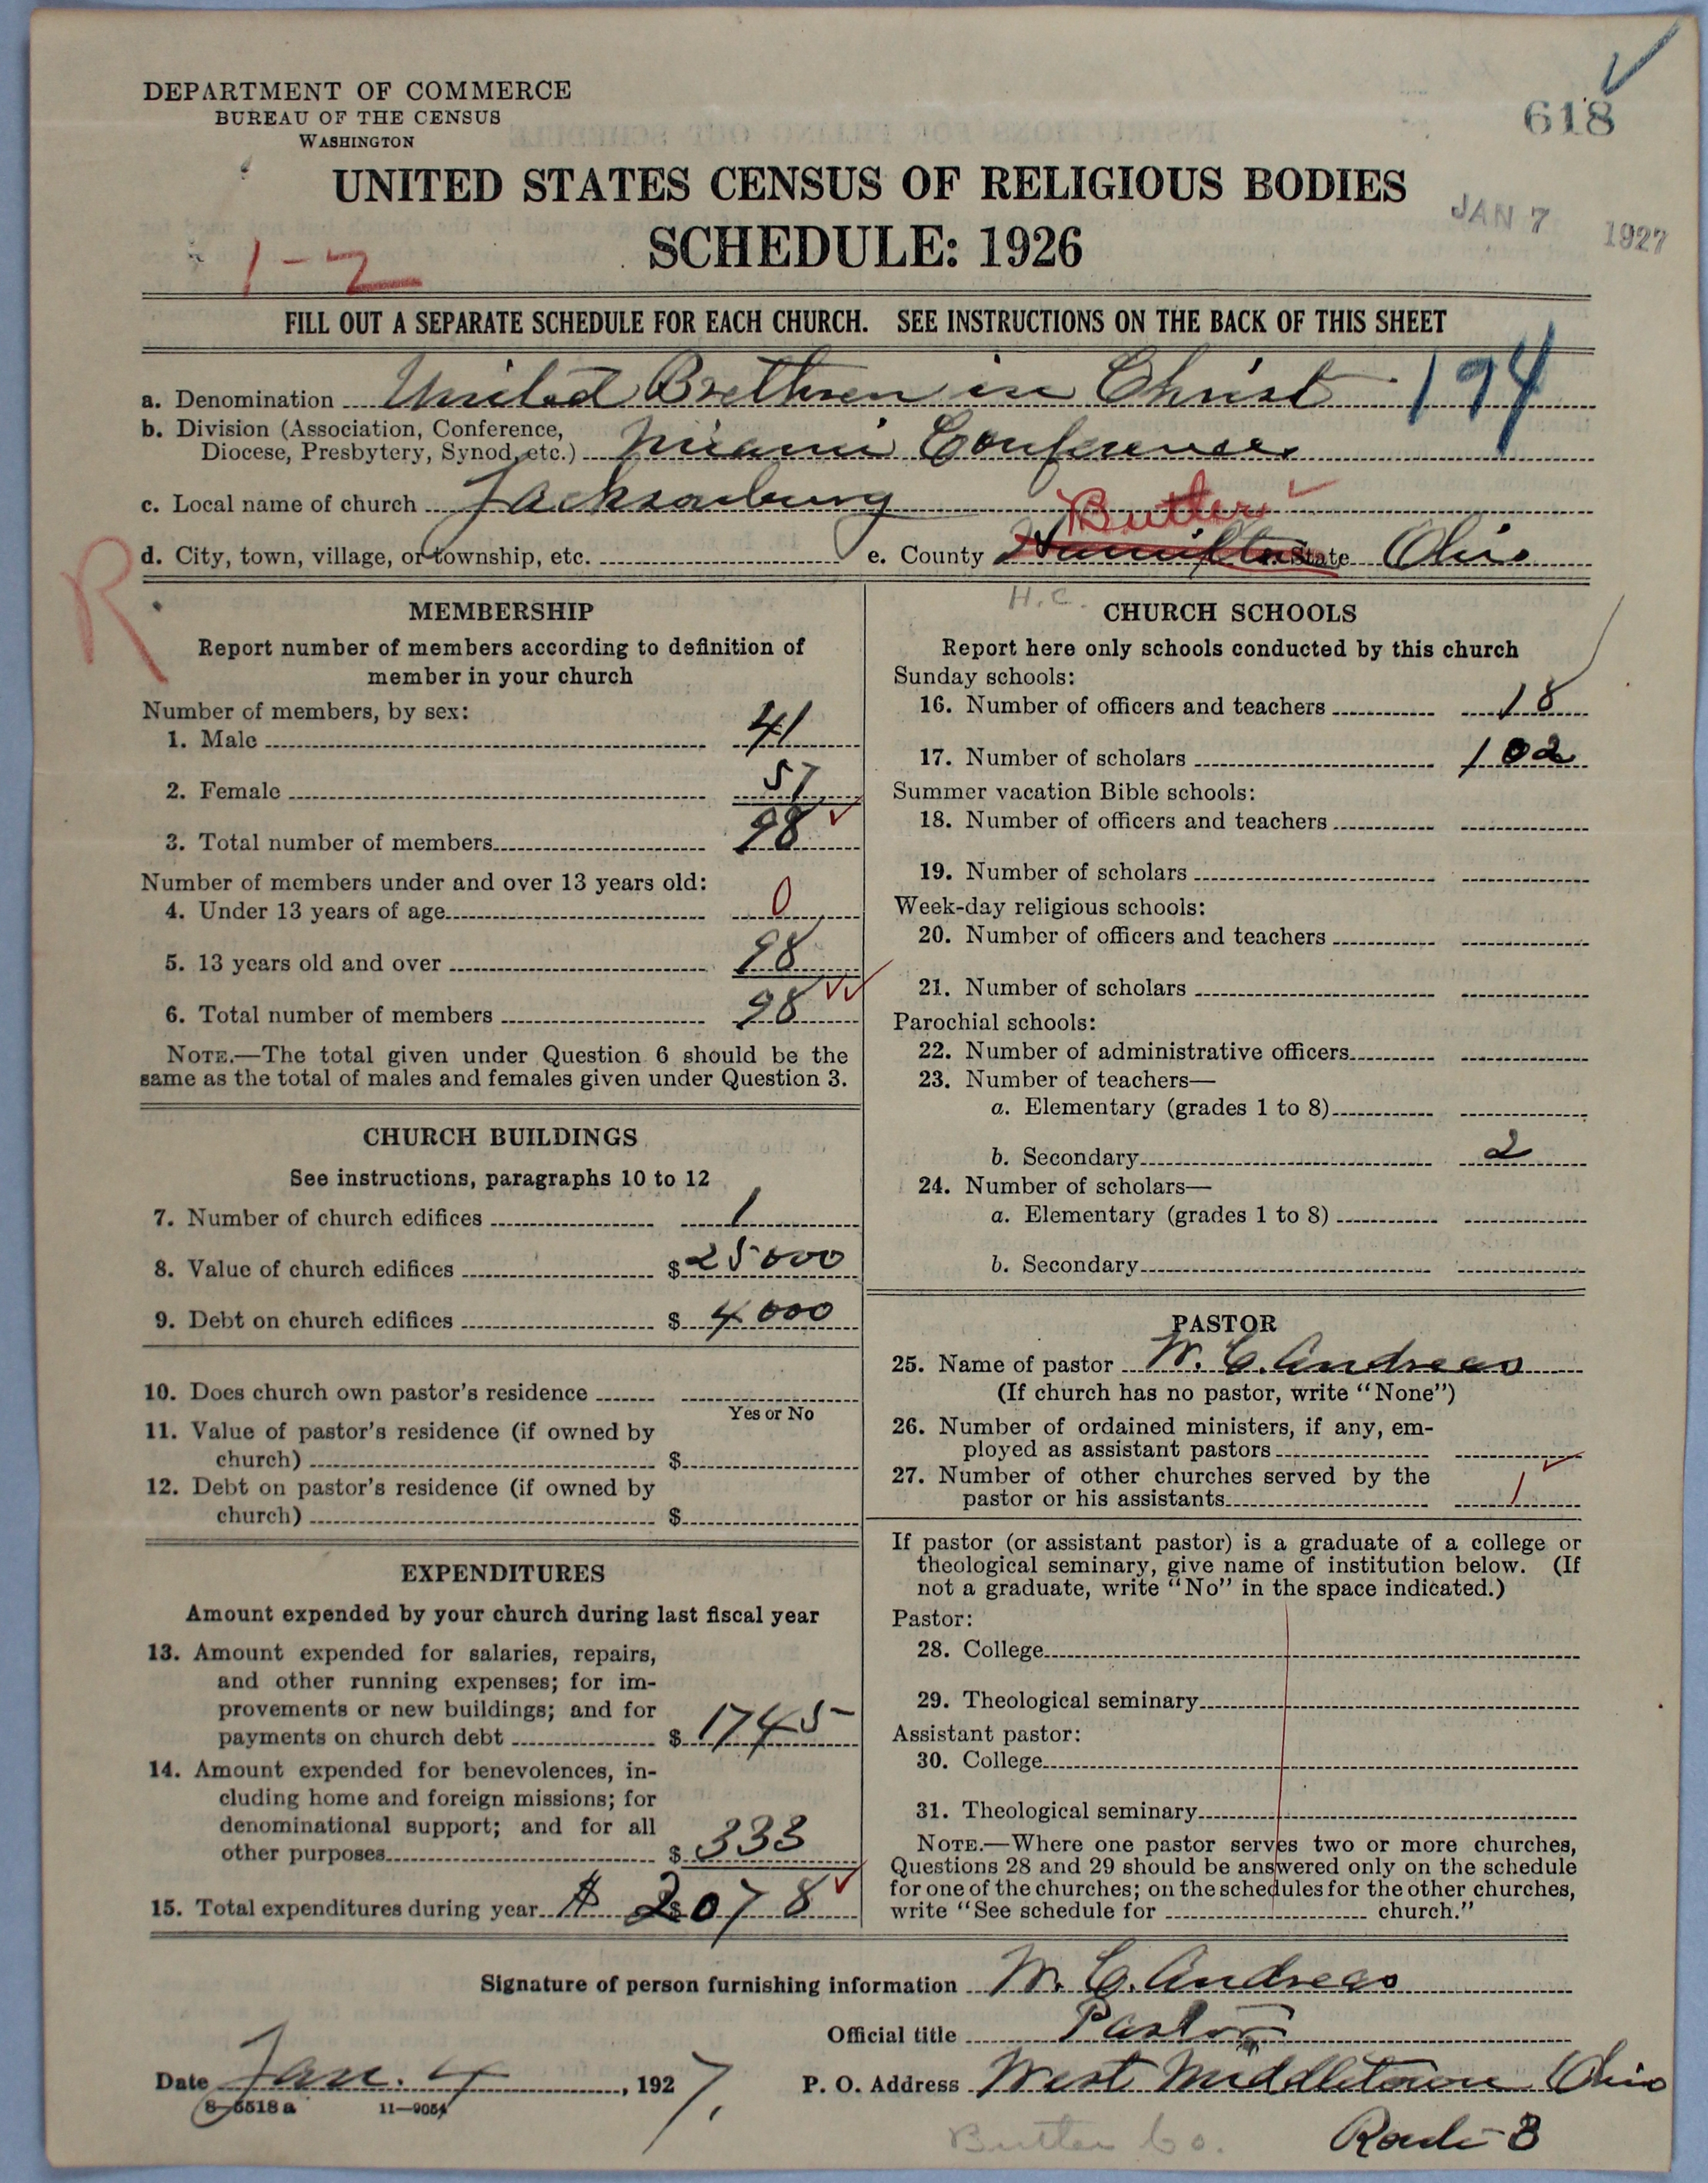 DEPARTMENT OF COMMERCE
BUREAU OF THE CENSUS
WASHINGTON
618
UNITED STATES CENSUS OF RELIGIOUS BODIES
SCHEDULE: 1926
JAN 7 1927
1-2
FILL OUT A SEPARATE SCHEDULE FOR EACH CHURCH. SEE INSTRUCTIONS ON THE BACK OF THIS SHEET
a. Denomination United Brethren in Christ 194
b. Division (Association, Conference,
Diocese, Presbytery, Synod, etc.) Miami Conference
c. Local name of church Jacksonburg
Butler
d. City, town, village, or township, etc. e. County Hamilton State Ohio
R
H.C.
MEMBERSHIP
Report number of members according to definition of
member in your church
Number of members, by sex:
1. Male 41
2. Female 57
3. Total number of members 98
Number of members under and over 13 years old:
4. Under 13 years of age 0
5. 13 years old and over 98
6. Total number of members 98
NOTE.—The total given under Question 6 should be the
same as the total of males and females given under Question 3.
CHURCH BUILDINGS
See instructions, paragraphs 10 to 12
7. Number of church edifices 1
8. Value of church edifices $25000
9. Debt on church edifices $4000
10. Does church own pastor's residence
Yes or No
11. Value of pastor's residence (if owned by
church) $
12. Debt on pastor's residence (if owned by
church) $
EXPENDITURES
Amount expended by your church during last fiscal year
13. Amount expended for salaries, repairs,
and other running expenses; for im-
provements or new buildings; and for
payments on church debt $1745
14. Amount expended for benevolences, in-
cluding home and foreign missions; for
denominational support; and for all
other purposes $333
15. Total expenditures during year $ 2078
CHURCH SCHOOLS
Report here only schools conducted by this church
Sunday schools:
16. Number of officers and teachers 18
17. Number of scholars 102
Summer vacation Bible schools:
18. Number of officers and teachers
19. Number of scholars
Week-day religious schools:
20. Number of officers and teachers
21. Number of scholars
Parochial schools:
22. Number of administrative officers
23. Number of teachers—
a. Elementary (grades 1 to 8)
b. Secondary 2
24. Number of scholars—
a. Elementary (grades 1 to 8)
b. Secondary
PASTOR
25. Name of pastor W. C. Andreas
(If church has no pastor, write "None")
26. Number of ordained ministers, if any, em-
ployed as assistant pastors
27. Number of other churches served by the
pastor or his assistants 1
If pastor (or assistant pastor) is a graduate of a college or
theological seminary, give name of institution below. (If
not a graduate, write "No" in the space indicated.)
Pastor:
28. College
29. Theological seminary
Assistant pastor:
30. College
31. Theological seminary
NOTE.—Where one pastor serves two or more churches,
Questions 28 and 29 should be answered only on the schedule
for one of the churches; on the schedules for the other churches,
write "See schedule for church."
Signature of person furnishing information W. C. Andreas
Official title Pastor
Date Jan. 4, 1927. P. O. Address West Middletown Ohio
8-5518a 11-9054
Butler Co. Route 3